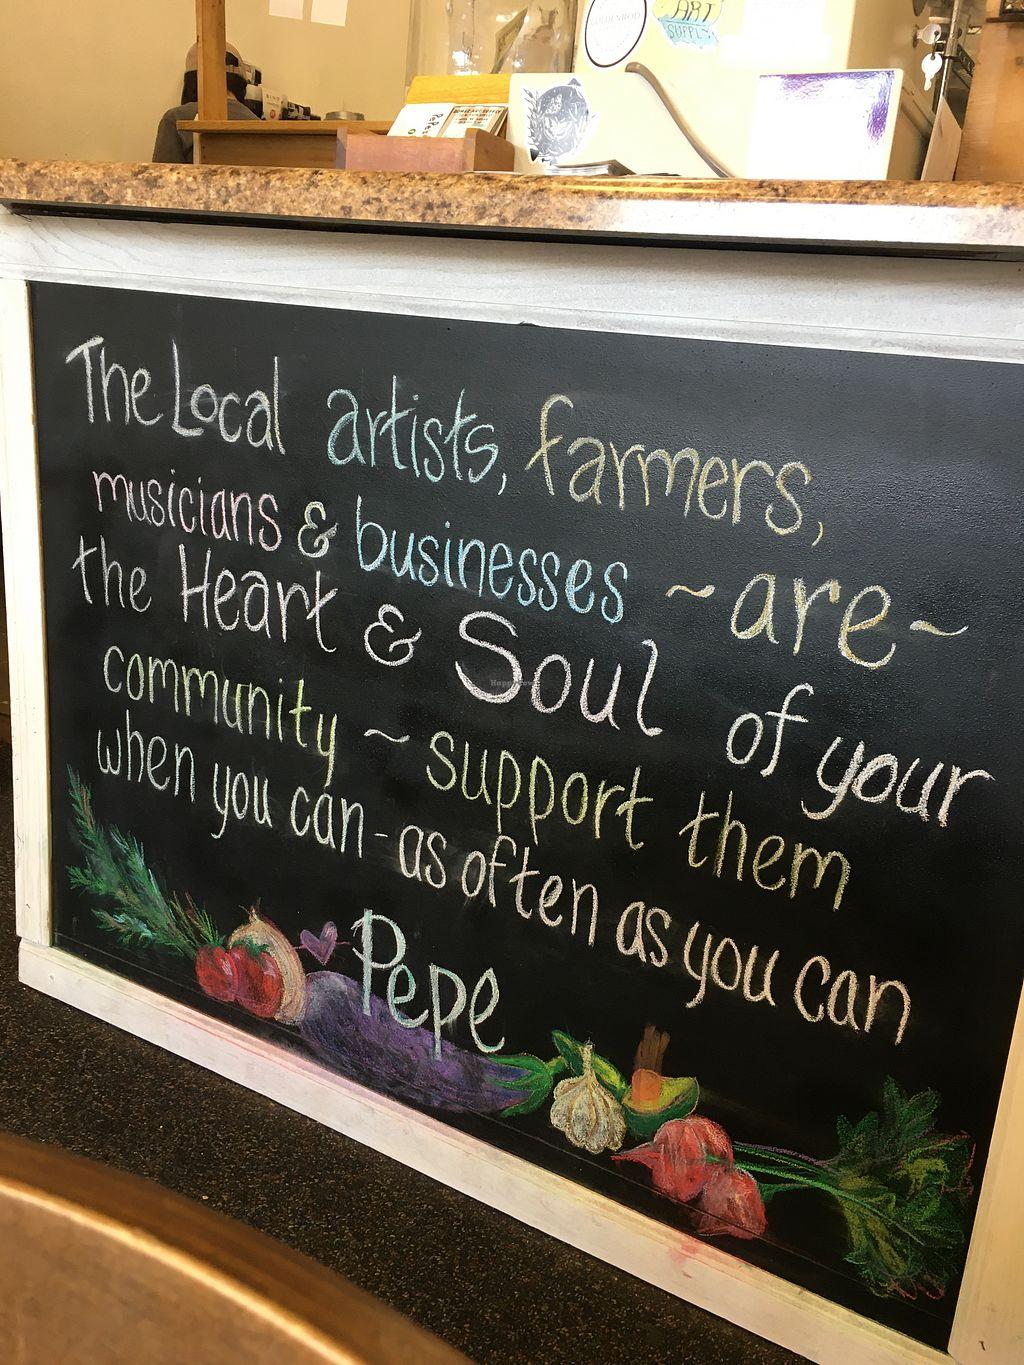 GOLDENROD
ART
SUPPLY
The Local artists, farmers,
musicians & businesses ~are~
the Heart & Soul of your
community ~ support them
when you can - as often as you can
Pepe
HappyCow